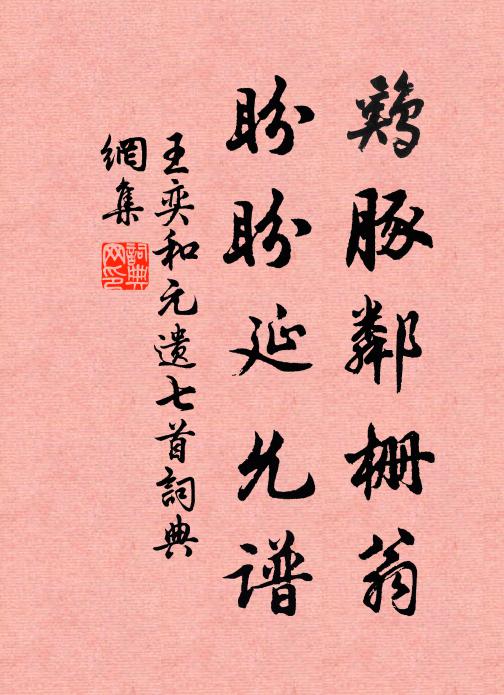 鷄豚鄰栅翁
盼盼延允谱
王奕和元遗七首詞典
網集
詞典网印